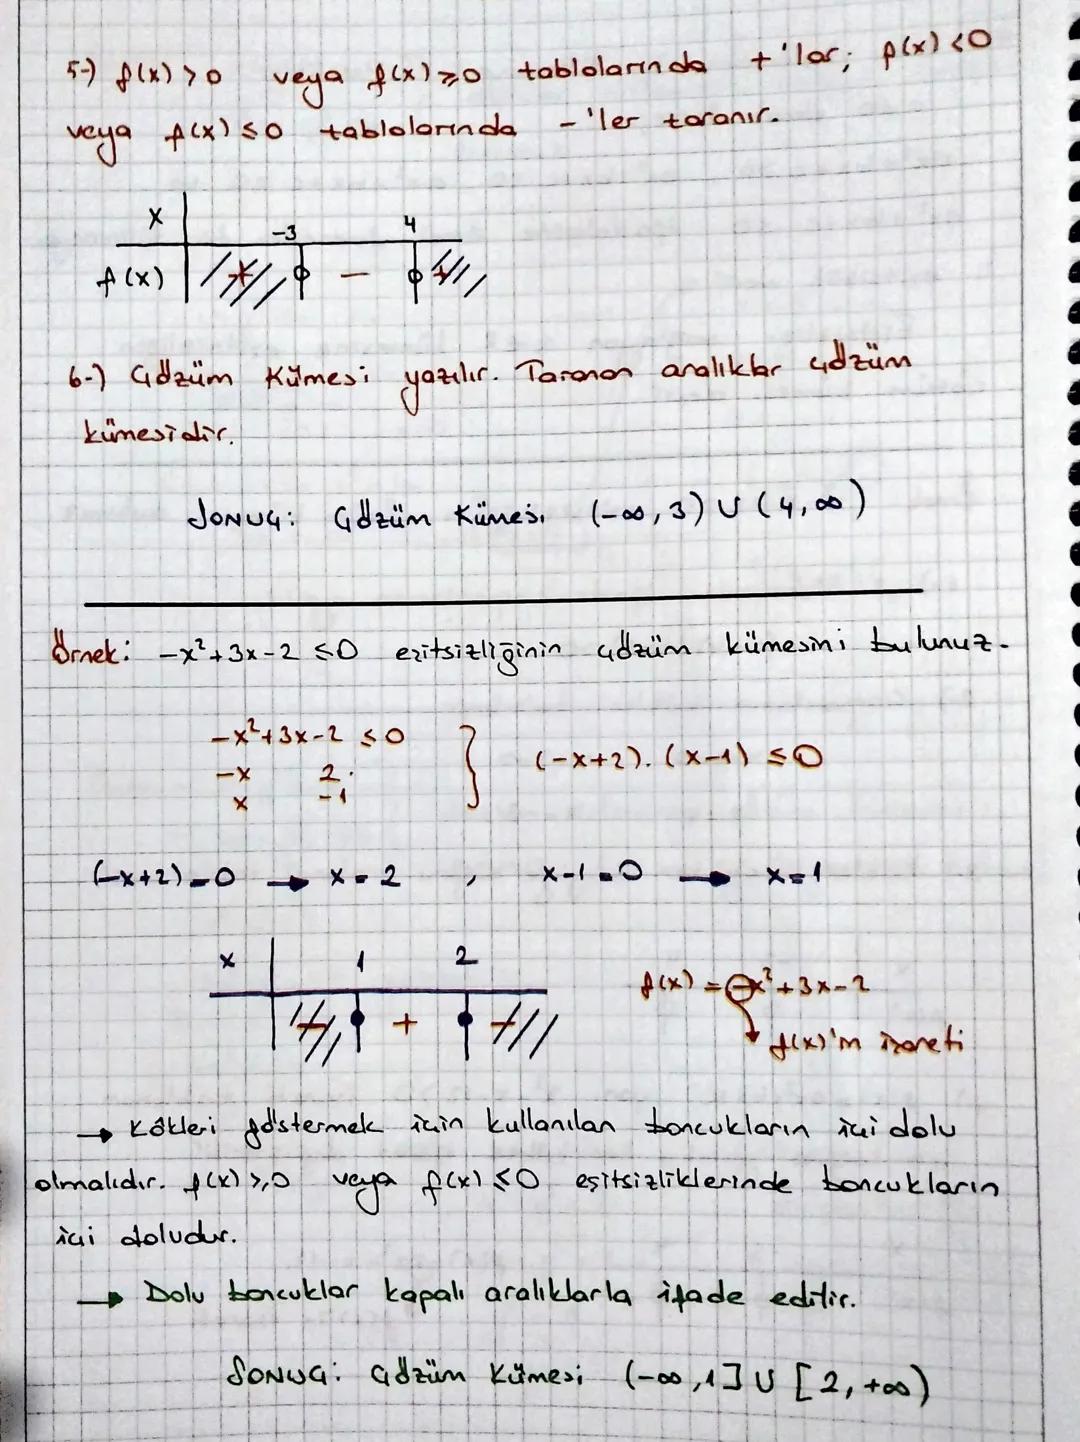 5-) f(x) > 0 veya f(x) ≥ 0 tablolarında +'lar; f(x) < 0
veya f(x) ≤ 0 tablolarında -'ler taranır.
x -3 4
f(x) + - +
6-) Çözüm Kümesi yazılır. Taranan aralıklar çözüm
kümesidir.
SONUÇ: Çözüm Kümesi (-∞, 3) ∪ (4, ∞)
Örnek: -x²+3x-2 ≤ 0 eşitsizliğinin çözüm kümesini bulunuz.
-x²+3x-2 ≤ 0
-x 2 } (-x+2).(x-1) ≤ 0
x -1
(-x+2)=0 → x=2 , x-1=0 → x=1
x 1 2
- + -
f(x) = -x²+3x-2
f(x)'in işareti
→ Kökleri göstermek için kullanılan boncukların içi dolu
olmalıdır. f(x) ≥ 0 veya f(x) ≤ 0 eşitsizliklerinde boncukların
içi doludur.
→ Dolu boncuklar kapalı aralıklarla ifade edilir.
SONUÇ: Çözüm Kümesi (-∞, 1] ∪ [2, +∞)